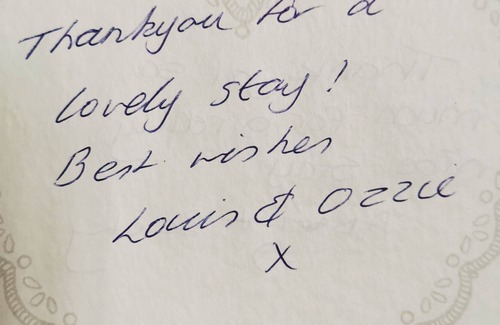 Thankyou for a
lovely stay!
Best wishes
Louis & Ozzie
X